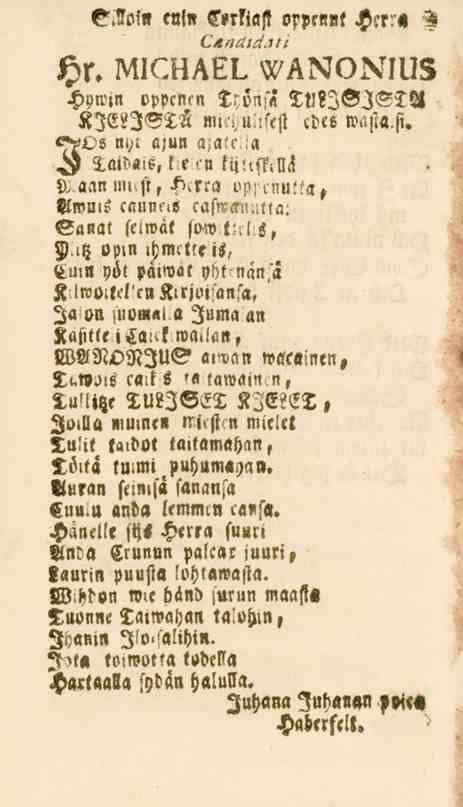 Silloin cuin Corkiast oppenut Herra
Candidati
Hr. MICHAEL WANONIUS
Hywin oppenen Työnsä TULISISTA
KIELISTÄ miehulisest edes wasta.si.
JOs nyt ajun ajatella
Taidais, kielen kijteskellä
Maan miest, Herra oppenutta,
Awuis cauneis caswanutta:
Sanat selwät sowittelis,
Mitz opin ihmetteis,
Cuin yöt päiwät yhtenänsä
Kilwoitellen Kirjoisansa,
Jalon suomalla Jumalan
Käsitteli Caickiwallan,
WANONJUS aiwan wacainen,
Tawois caikis taitawainen,
Tullitze TULJSET KJELET,
Joilla muinen miesten mielet
Tulit taidot taitamahan,
Töitä tuimi puhumahan.
Auran seinisä sanansa
Cuulu anda lemmen cansa.
Hänelle sijs Herra suuri
Anda Crunun palcax juuri,
Laurin puusta lohtawasta.
Wihdon wie händ surun maasta
Tuonne Taiwahan talohin,
Jhanin Jloisalihin.
Jota toiwotta todella
Hartaalla sydän halulla.
Juhana Juhanan poica
Haberfelt.